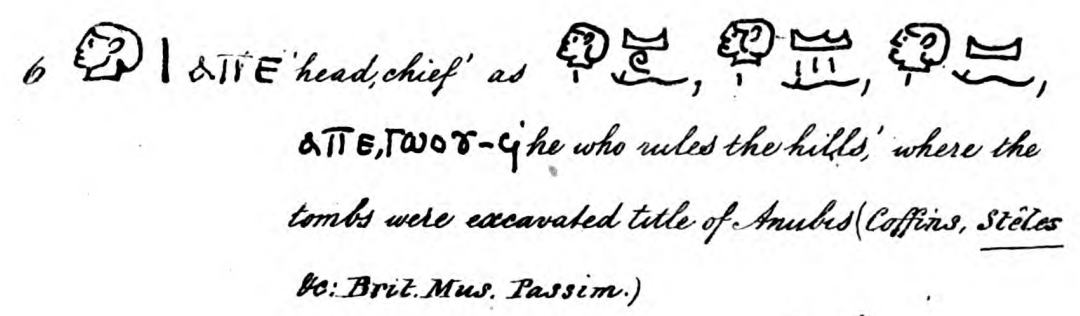 6 𓁶𓏤 ⲁⲡⲉ 'head, chief' as 𓁶𓈋𓏲𓆑, 𓁶𓈋𓏪𓆑, 𓁶𓈋𓆑,
ⲁⲡⲉ,ⲧⲱⲟⲩ-ϥ 'he who rules the hills,' where the
tombs were excavated title of Anubis (Coffins, Stêles
&c: Brit. Mus. Passim.)